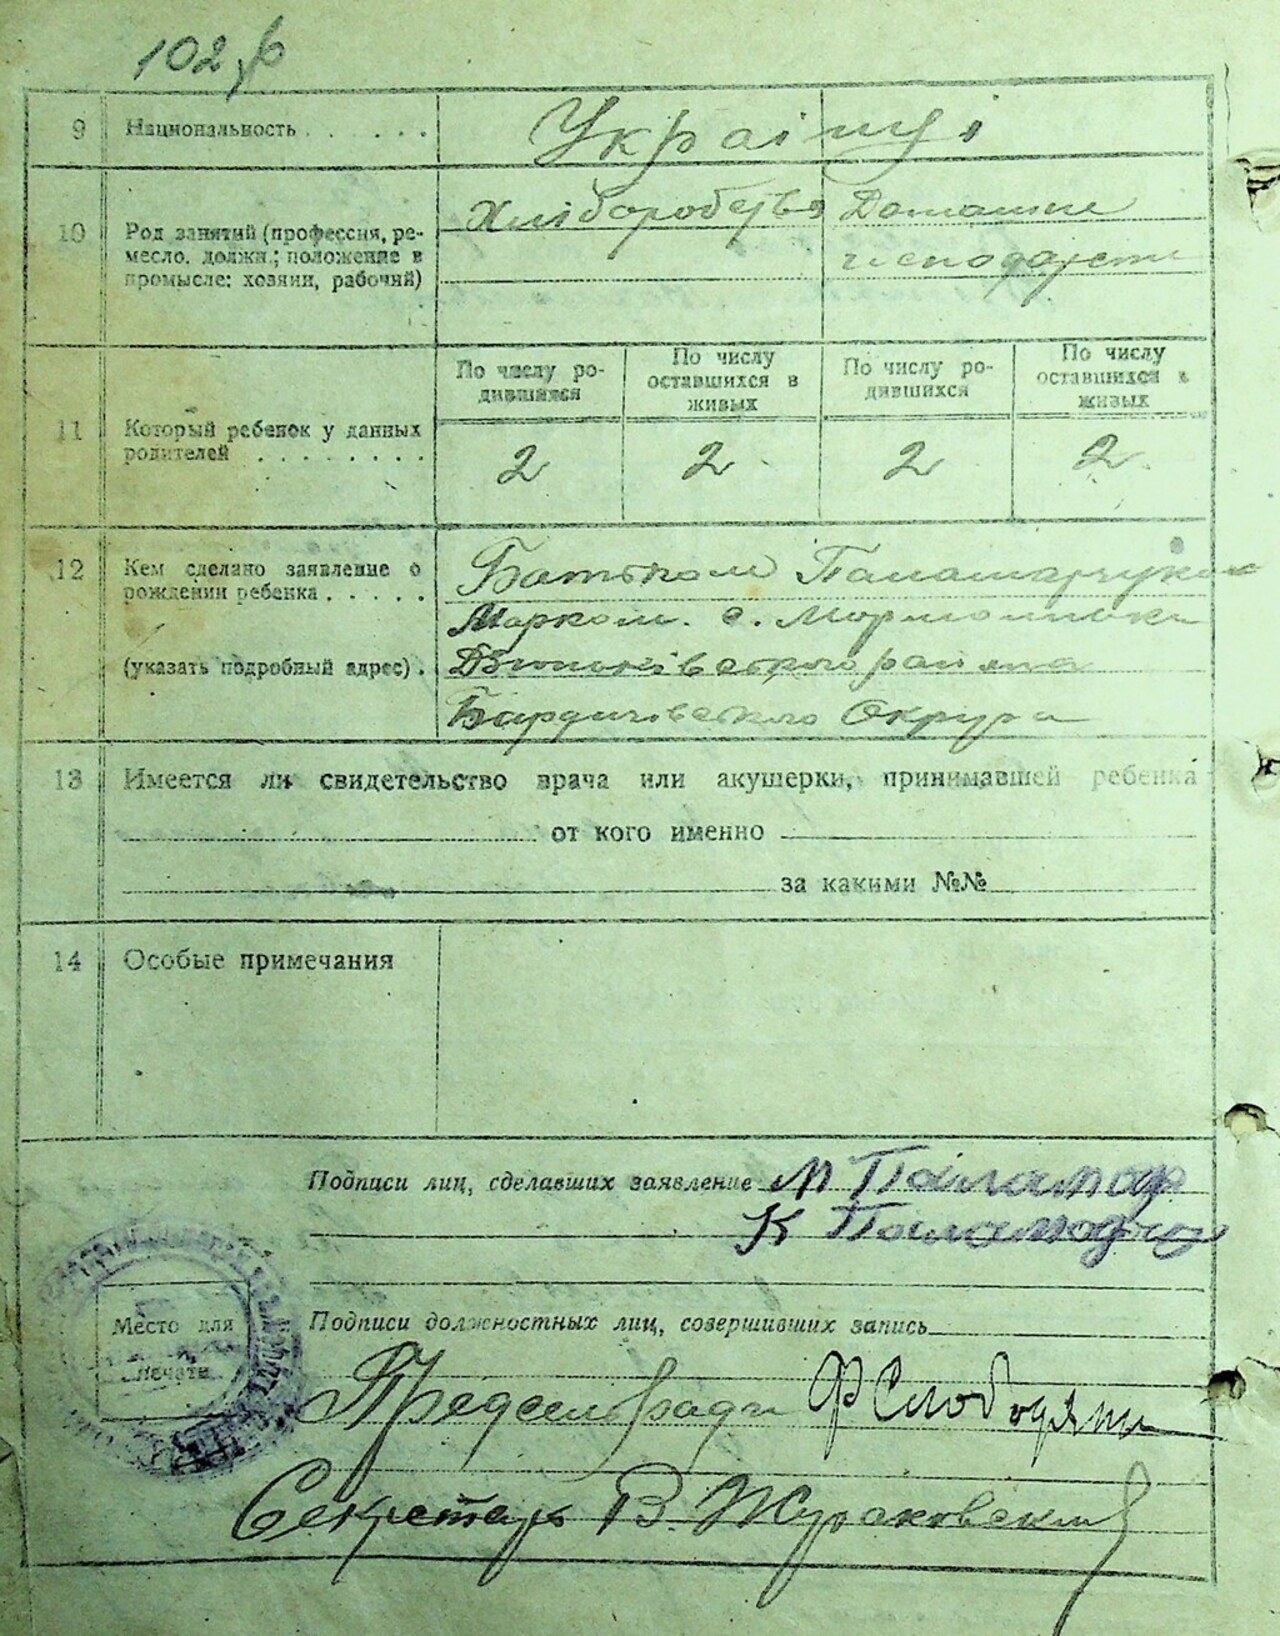 102
9 Национальность . . . . . . Українці
10 Род занятий (профессия, ре-
месло, должн.; положение в
промысле: хозяин, рабочий)
Хліборобство Домашне
господарство
11 Который ребенок у данных
родителей . . . . . . . .
По числу ро-
дившихся
По числу
оставшихся в
живых
По числу ро-
дившихся
По числу
оставшихся в
живых
2 2 2 2
12 Кем сделано заявление о
рождении ребенка . . . . .
(указать подробный адрес) .
Батьком Паламарчуком
Марком. с.
района
Бердичівського Округи
13 Имеется ли свидетельство врача или акушерки, принимавшей ребенка
от кого именно
за какими №№
14 Особые примечания
Подписи лиц, сделавших заявление М Паламар
К
Место для
печати
Подписи должностных лиц, совершивших запись
Предсельради Ф Слободяни
Секретарь В. Жураковский